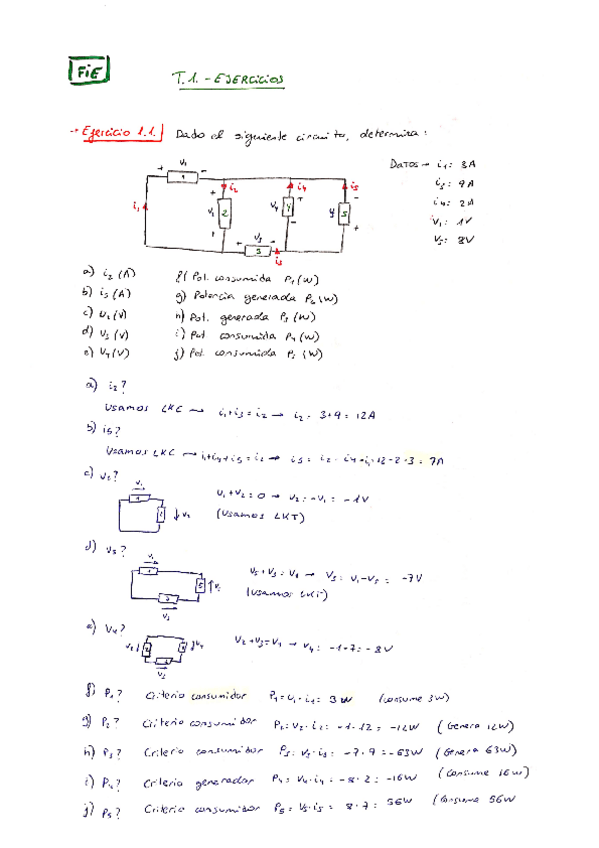 FiE
T.1. - EJERCICIOS
→ Ejercicio 1.1. Dado el siguiente circuito, determina:
Datos → i1: 3A
i3: 9A
i4: 2A
V1: 1V
V5: 8V
a) i2 (A) f) Pot. consumida P1 (W)
b) i5 (A) g) Potencia generada P2 (W)
c) V2 (V) h) Pot. generada P3 (W)
d) V3 (V) i) Pot consumida P4 (W)
e) V4 (V) j) Pot. consumida P5 (W)
a) i2?
Usamos LKC → i1+i3 = i2 → i2 = 3+9 = 12A
b) i5?
Usamos LKC → i1+i4+i5 = i2 → i5 = i2 - i4 - i1 = 12-2-3 = 7A
c) V2?
V1+V2 = 0 → V2 = -V1 = -1V
(Usamos LKT)
d) V3?
V5+V3 = V1 → V3 = V1-V5 = -7V
(Usamos LKT)
e) V4?
V2+V3=V4 → V4 = -1-7 = -8V
f) P1? Criterio consumidor P1 = V1·i1 = 3W (consume 3W)
g) P2? Criterio consumidor P2 = V2·i2 = -1·12 = -12W (Genera 12W)
h) P3? Criterio consumidor P3 = V3·i3 = -7·9 = -63W (Genera 63W)
i) P4? Criterio generador P4 = V4·i4 = -8·2 = -16W (Consume 16W)
j) P5? Criterio consumidor P5 = V5·i5 = 8·7 = 56W (Consume 56W